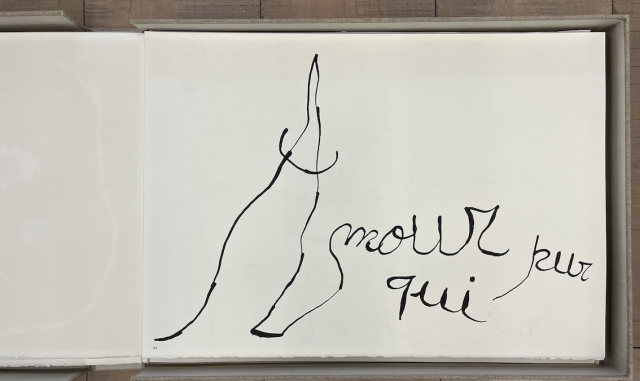 Amour pur
qui